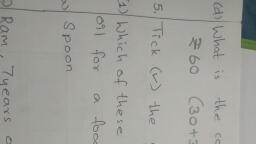 (d) What is the co
₹60 (30+3
5. Tick (✓) the
(1) Which of these
oil for a foo
a) Spoon
) Ram, 7 years o